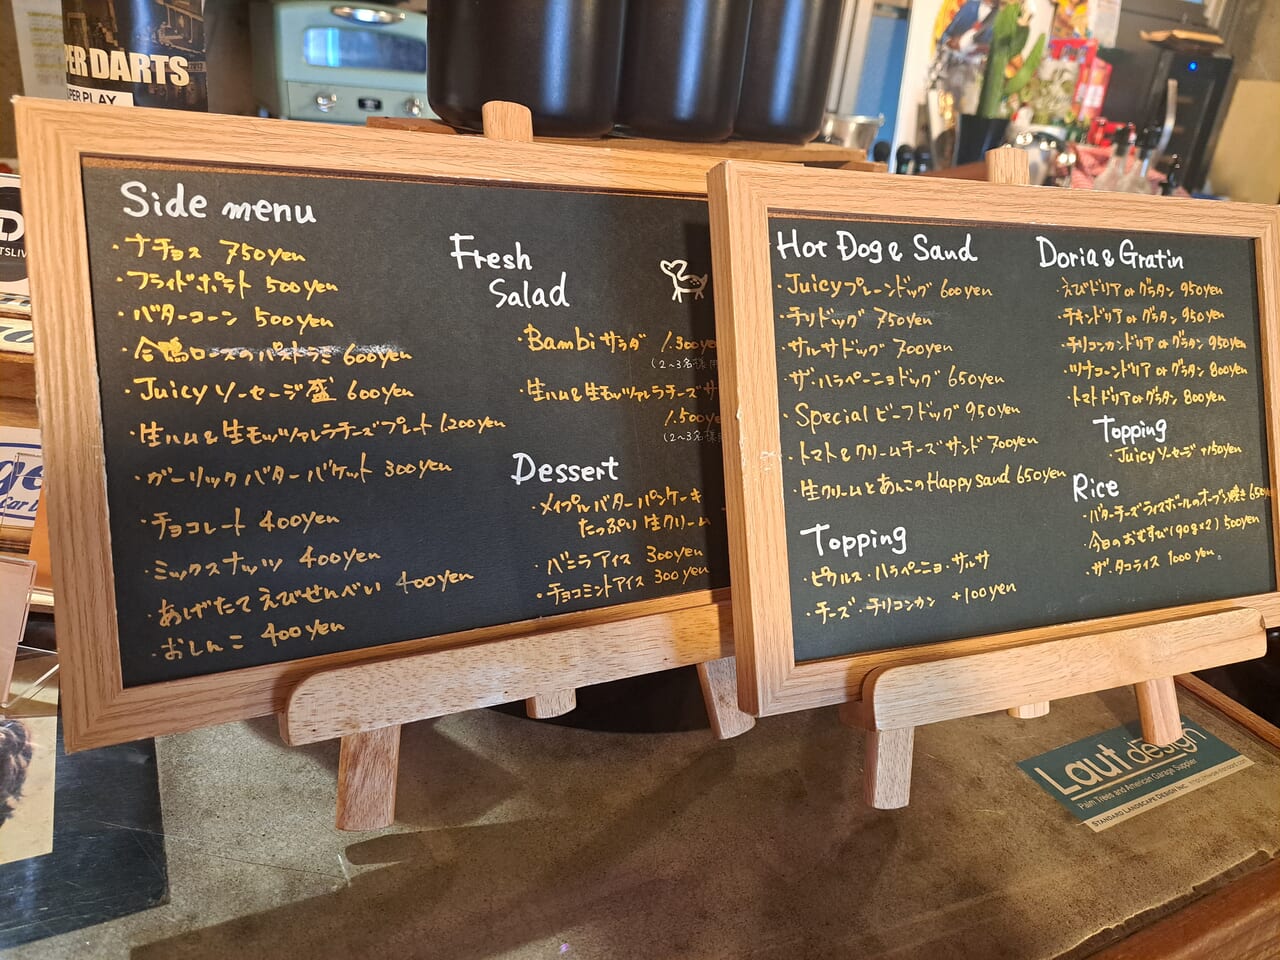 PER DARTS
PER PLAY
Side menu
・ナチョス 750yen
・フライドポテト 500yen
・バターコーン 500yen
・合鴨ロースのパストラミ 600yen
・Juicyソーセージ盛 600yen
・生ハム&生モッツァレラチーズプレート 1,200yen
・ガーリックバターバケット 300yen
・チョコレート 400yen
・ミックスナッツ 400yen
・あげたてえびせんべい 400yen
・おしんこ 400yen
Fresh
Salad
・Bambiサラダ 1,300ye
(2~3名様用
・生ハム&生モッツァレラチーズサ
1,500ye
(2~3名様用
Dessert
・メイプルバターパンケーキ
たっぷり生クリーム
・バニラアイス 300yen
・チョコミントアイス 300yen
Hot Dog & Sand
・Juicyプレーンドッグ 600yen
・チリドッグ 750yen
・サルサドッグ 700yen
・ザ・ハラペーニョドッグ 650yen
・Specialビーフドッグ 950yen
・トマト&クリームチーズサンド 700yen
・生クリームとあんこのHappy sand 650yen
Topping
・ピクルス・ハラペーニョ・サルサ
・チーズ・チリコンカン +100yen
Doria & Gratin
・えびドリア or グラタン 950yen
・チキンドリア or グラタン 950yen
・チリコンカンドリア or グラタン 950yen
・ツナコーンドリア or グラタン 800yen
・トマトドリア or グラタン 800yen
Topping
・Juicyソーセージ +150yen
Rice
・バターチーズライスボールのオーブン焼き 650y
・今日のおむすび(90g×2) 500yen
・ザ・タコライス 1000yen
Laut design
Palm Trees and American Garage Supplier
STANDARD LANDSCAPE DESIGN INC.